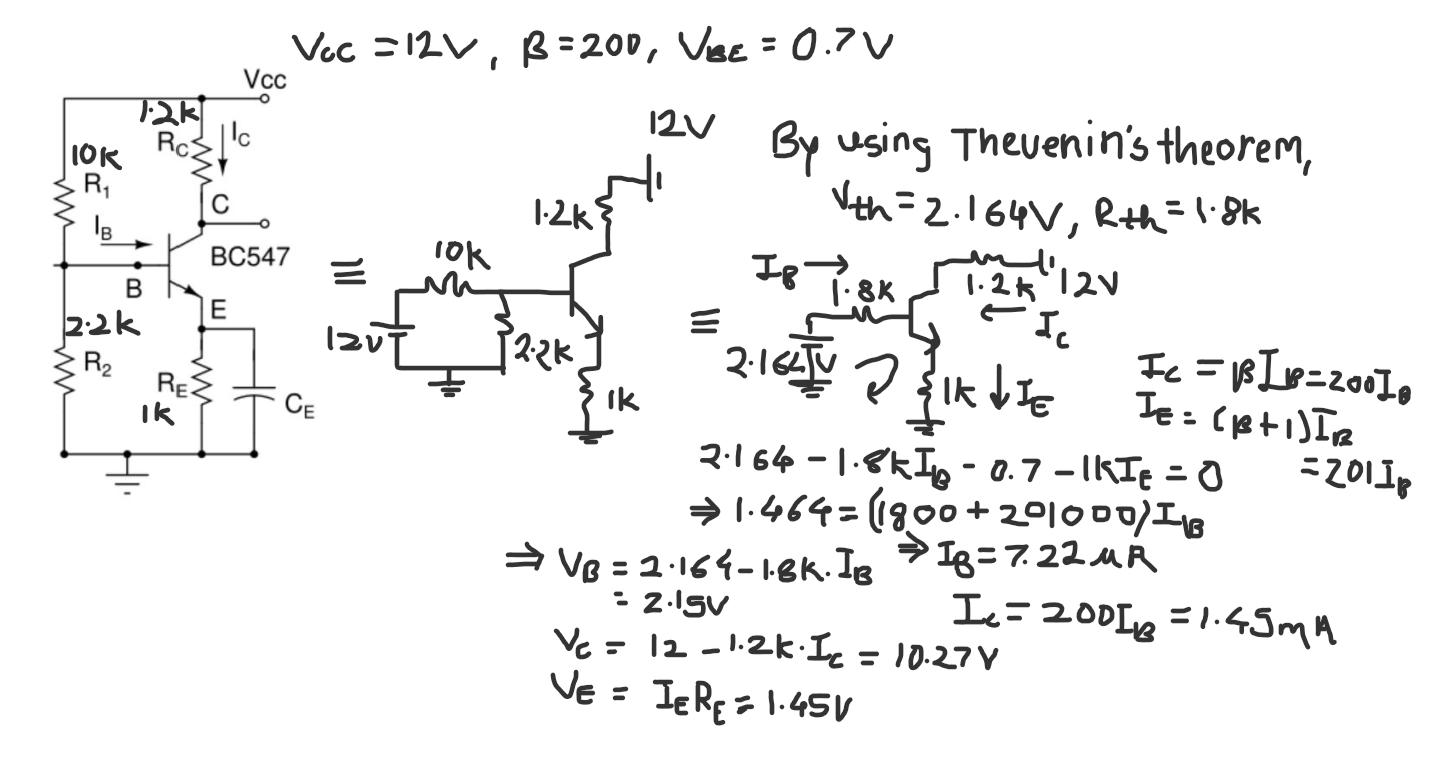 V_CC = 12V, β = 200, V_BE = 0.7V
Vcc
1.2k
R_C
I_C
10k
R_1
C
I_B
BC547
B
E
2.2k
R_2
R_E
1k
C_E
≡
12V
1.2k
10k
12V
2.2k
1k
By using Thevenin's theorem,
V_th = 2.164V, R_th = 1.8k
≡
I_B →
1.8k
1.2k
12V
← I_C
2.164V
1k ↓ I_E
I_C = βI_B = 200I_B
I_E = (β+1)I_B
= 201I_B
2.164 - 1.8kI_B - 0.7 - 1kI_E = 0
⇒ 1.464 = (1800 + 201000)I_B
⇒ I_B = 7.22 μA
I_C = 200I_B = 1.45mA
⇒ V_B = 2.164 - 1.8k.I_B
= 2.15V
V_C = 12 - 1.2k.I_C = 10.27V
V_E = I_E R_E = 1.45V